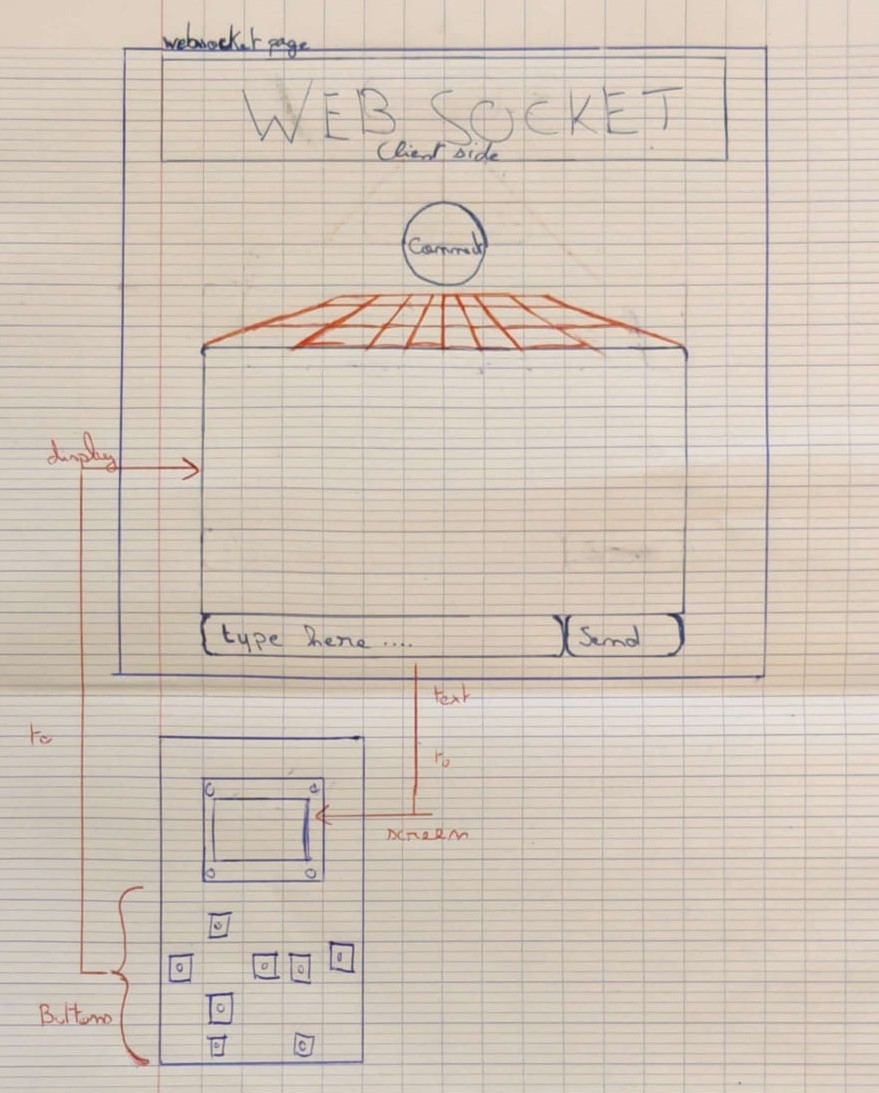 websocket page
WEB SOCKET
Client side
display
type here ....
Send
text
to
to
screen
Buttons